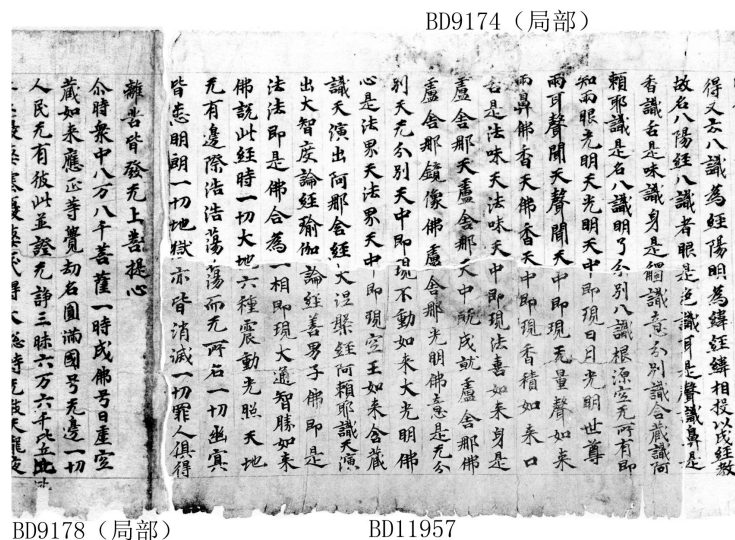 BD9174（局部）
得又云八識為經陽明為緯經緯相投以成經教
故名八陽經八識者眼是色識耳是聲識鼻是
香識舌是味識身是觸識意是分別識含藏識阿
賴耶識是名八識明了分別八識根源空无所有即
知兩眼光明天光明天中即現日月光明世尊
兩耳聲聞天聲聞天中即現无量聲如來
兩鼻佛香天佛香天中即現香積如來口
舌是法味天法味天中即現法喜如來身是
盧舍那天盧舍那天中即現成就盧舍那佛
盧舍那鏡像佛盧舍那光明佛意是无分
別天无分別天中即現不動如來大光明佛
心是法界天法界天中即現空王如來含藏
識天演出阿那含經大涅槃經阿賴耶識天演
出大智度論經瑜伽論經善男子佛即是
法法即是佛合為一相即現大通智勝如來
佛說此經時一切大地六種震動光照天地
无有邊際浩浩蕩蕩而无所名一切幽冥
皆悉明朗一切地獄亦皆消滅一切罪人俱得
離苦皆發无上菩提心
尒時衆中八万八千菩薩一時成佛号曰虛空
藏如來應正等覺劫名圓滿國号无邊一切
人民无有彼此並證无諍三昧六万六千比丘
BD9178（局部）
BD11957